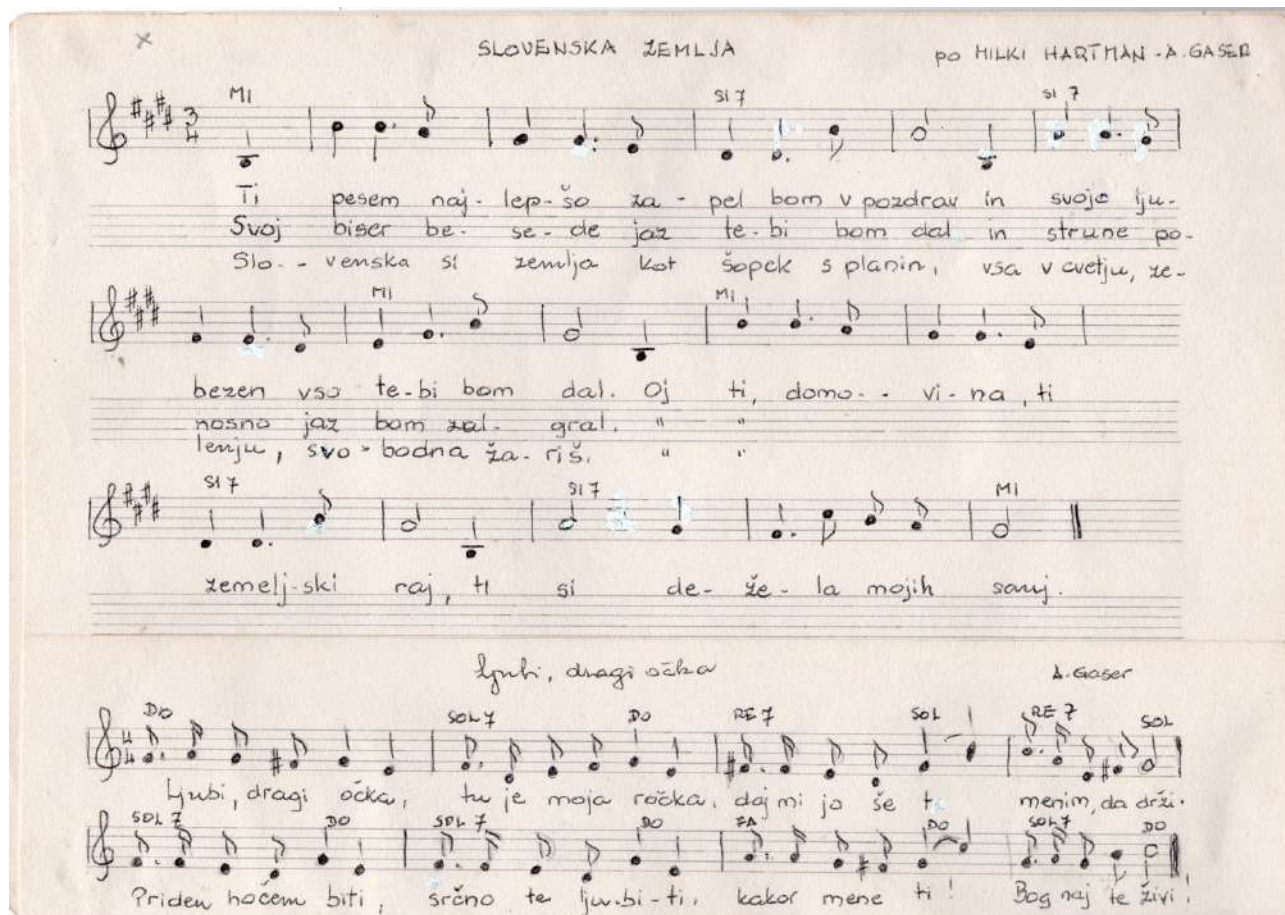 SLOVENSKA ZEMLJA po MILKI HARTMAN - A. GASER
MI SI 7 SI 7
3 4
Ti pesem naj - lep - šo za - pel bom v pozdrav in svojo lju -
Svoj biser be - se - de jaz te - bi bom dal in strune po -
Slo - - venska si zemlja kot šopek s planin, vsa v cvetju, ze -
MI MI
bezen vso te - bi bom dal. Oj ti, domo - - vi - na, ti
nosno jaz bom zai - gral. " "
lenju, svo - bodna ža - riš. " "
SI 7 SI 7 MI
zemelj - ski raj, ti si de - že - la mojih sanj.
Ljubi, dragi očka A. Gaser
DO SOL 7 DO RE 7 SOL RE 7 SOL
4 4
Ljubi, dragi očka, tu je moja ročka, daj mi jo še menim, da drži.
SOL 7 DO SOL 7 DO FA DO SOL 7 DO
Priden hočem biti, srčno te lju - bi - ti, kakor mene ti! Bog naj te živi!